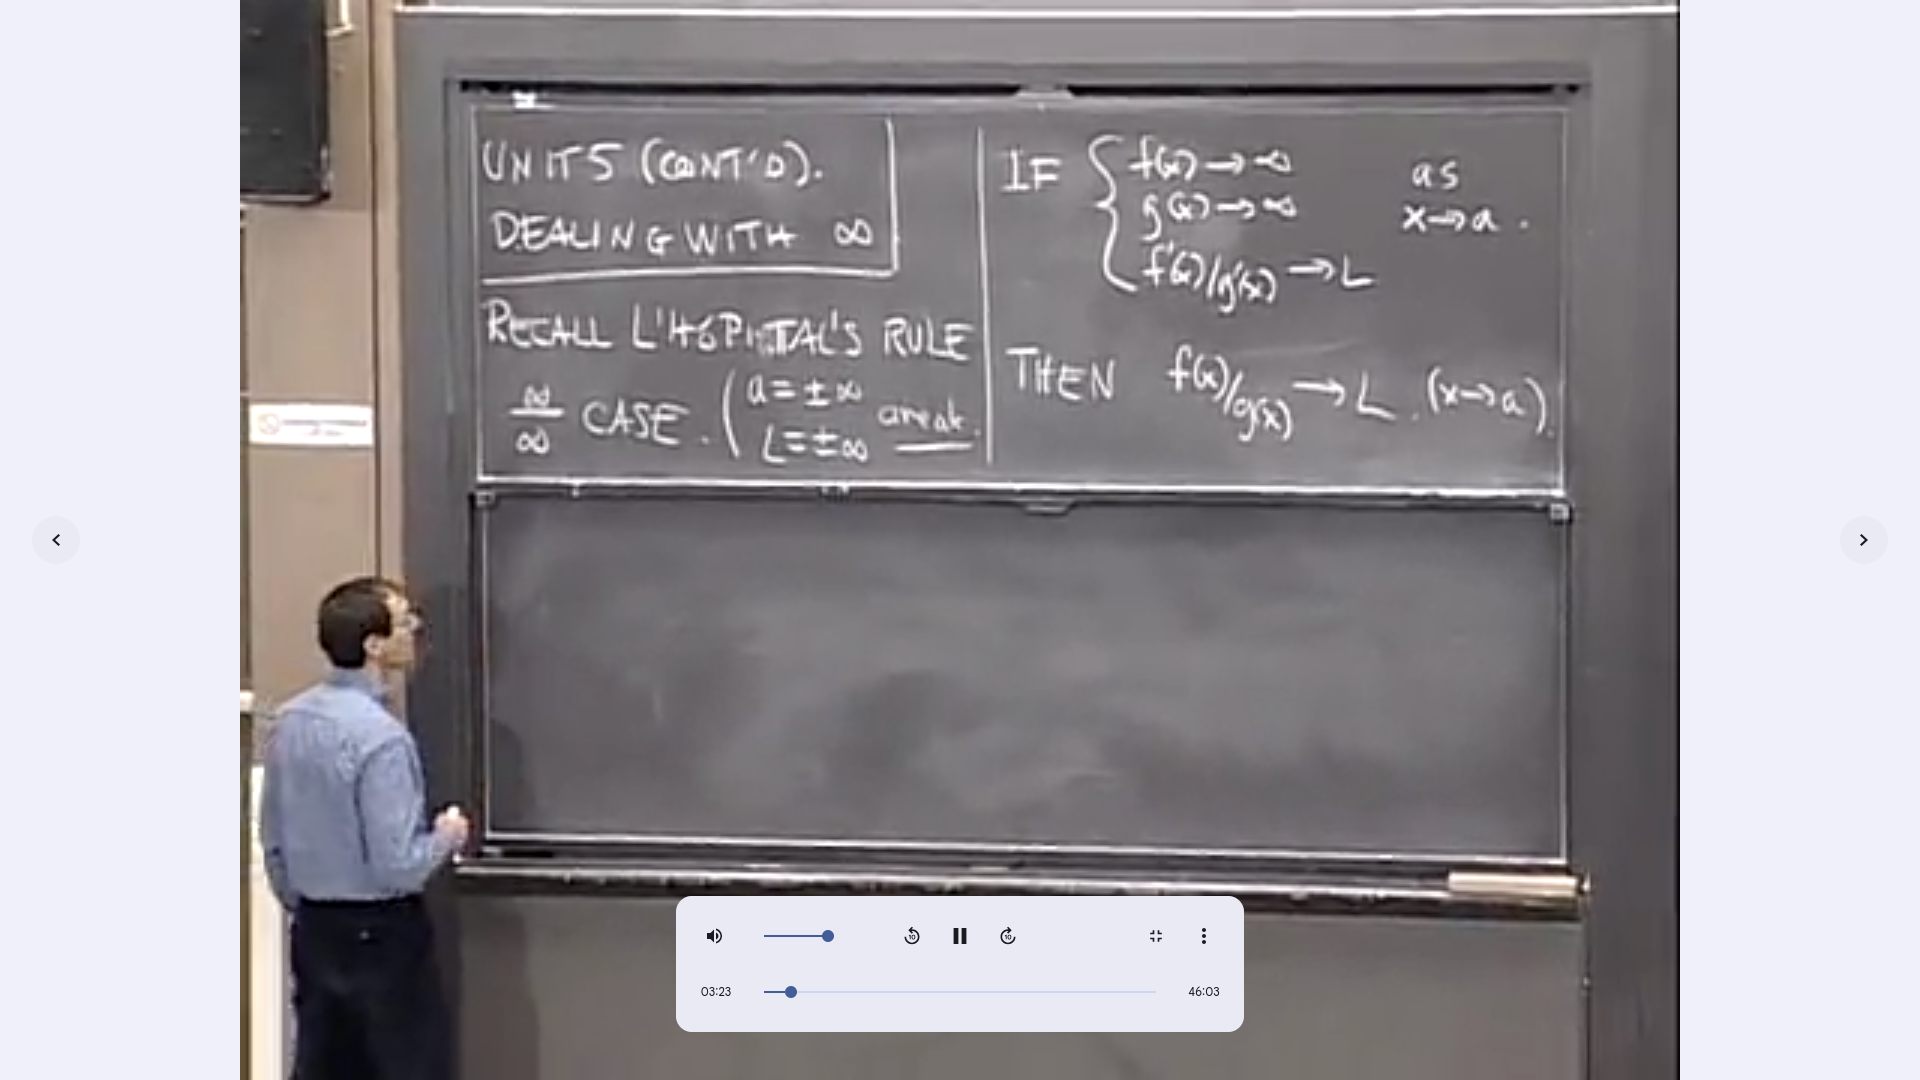 UNIT 5 (CONT'D).
DEALING WITH ∞
RECALL L'HÔPITAL'S RULE
∞/∞ CASE. (a = ± ∞
L = ± ∞ are ok.
IF { f(x) → ∞
g(x) → ∞
f'(x)/g'(x) → L
as
x → a.
THEN f(x)/g(x) → L. (x → a).
03:23
46:03